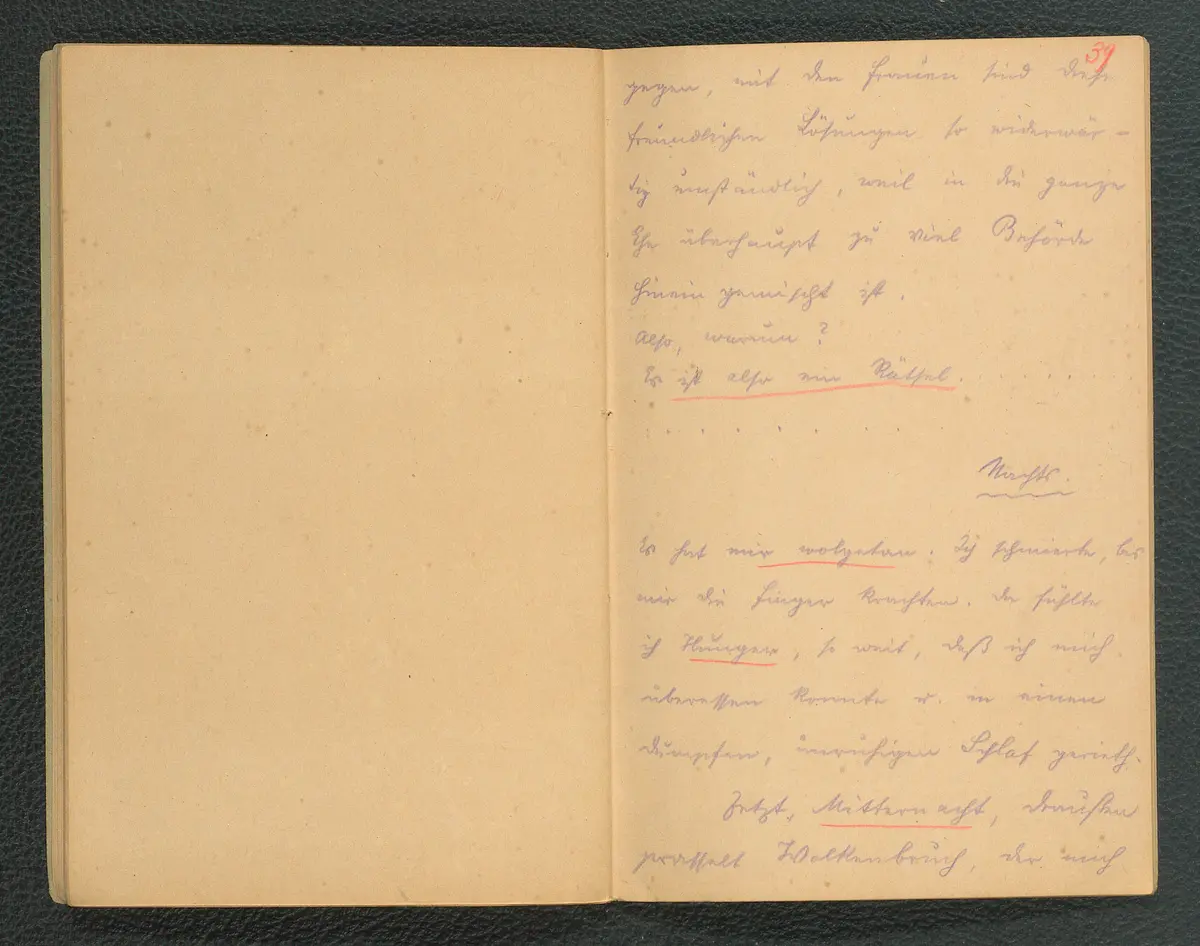 39
gegen, mit den Frauen sind diese
freundlichen Lösungen so widerwär-
tig umständlich, weil in die ganze
Ehe überhaupt zu viel Behörde
hinein gemischt ist.
Also, warum?
Es ist also ein Rätsel. . . . . . .
. . . . . . . .
Nachts.
Es hat mir wolgetan. Ich schmierte, bis
mir die Finger krachten. Da fühlte
ich Hunger, so weit, daß ich mich
überessen konnte u. in einen
dumpfen, unruhigen Schlaf gerieth.
Jetzt, Mitternacht, draußen
prasselt Wolkenbruch, der mich